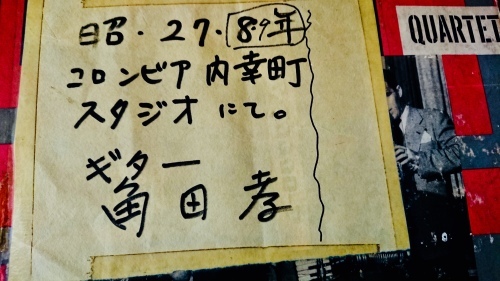 日昭・27・8.9年
コロンビア内幸町
スタジオにて。
ギター
角田孝
QUARTET